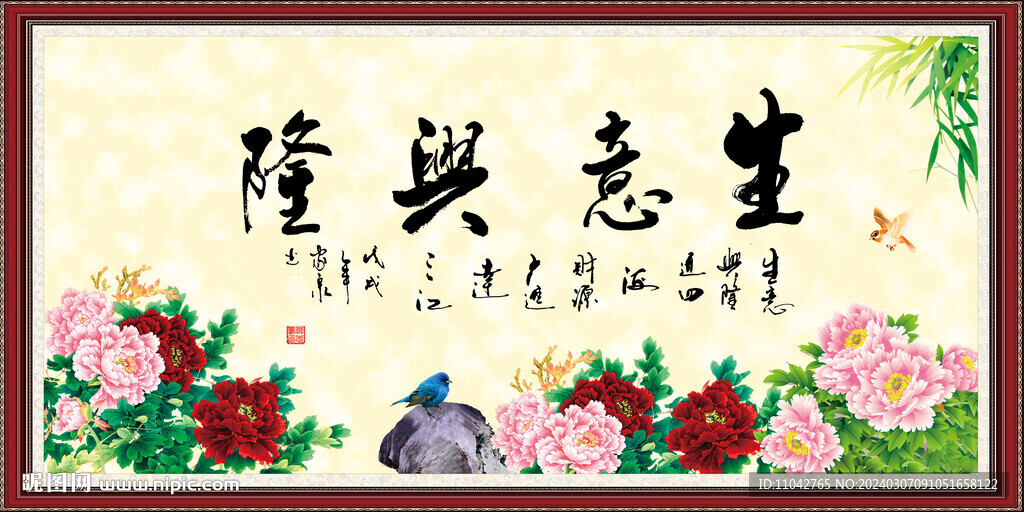 生意興隆
生意
興隆
通四
海
财源
广進
達
三江
戊戌
年
家泉
昵图网 www.nipic.com
ID:11042765 NO:20240307091051658122